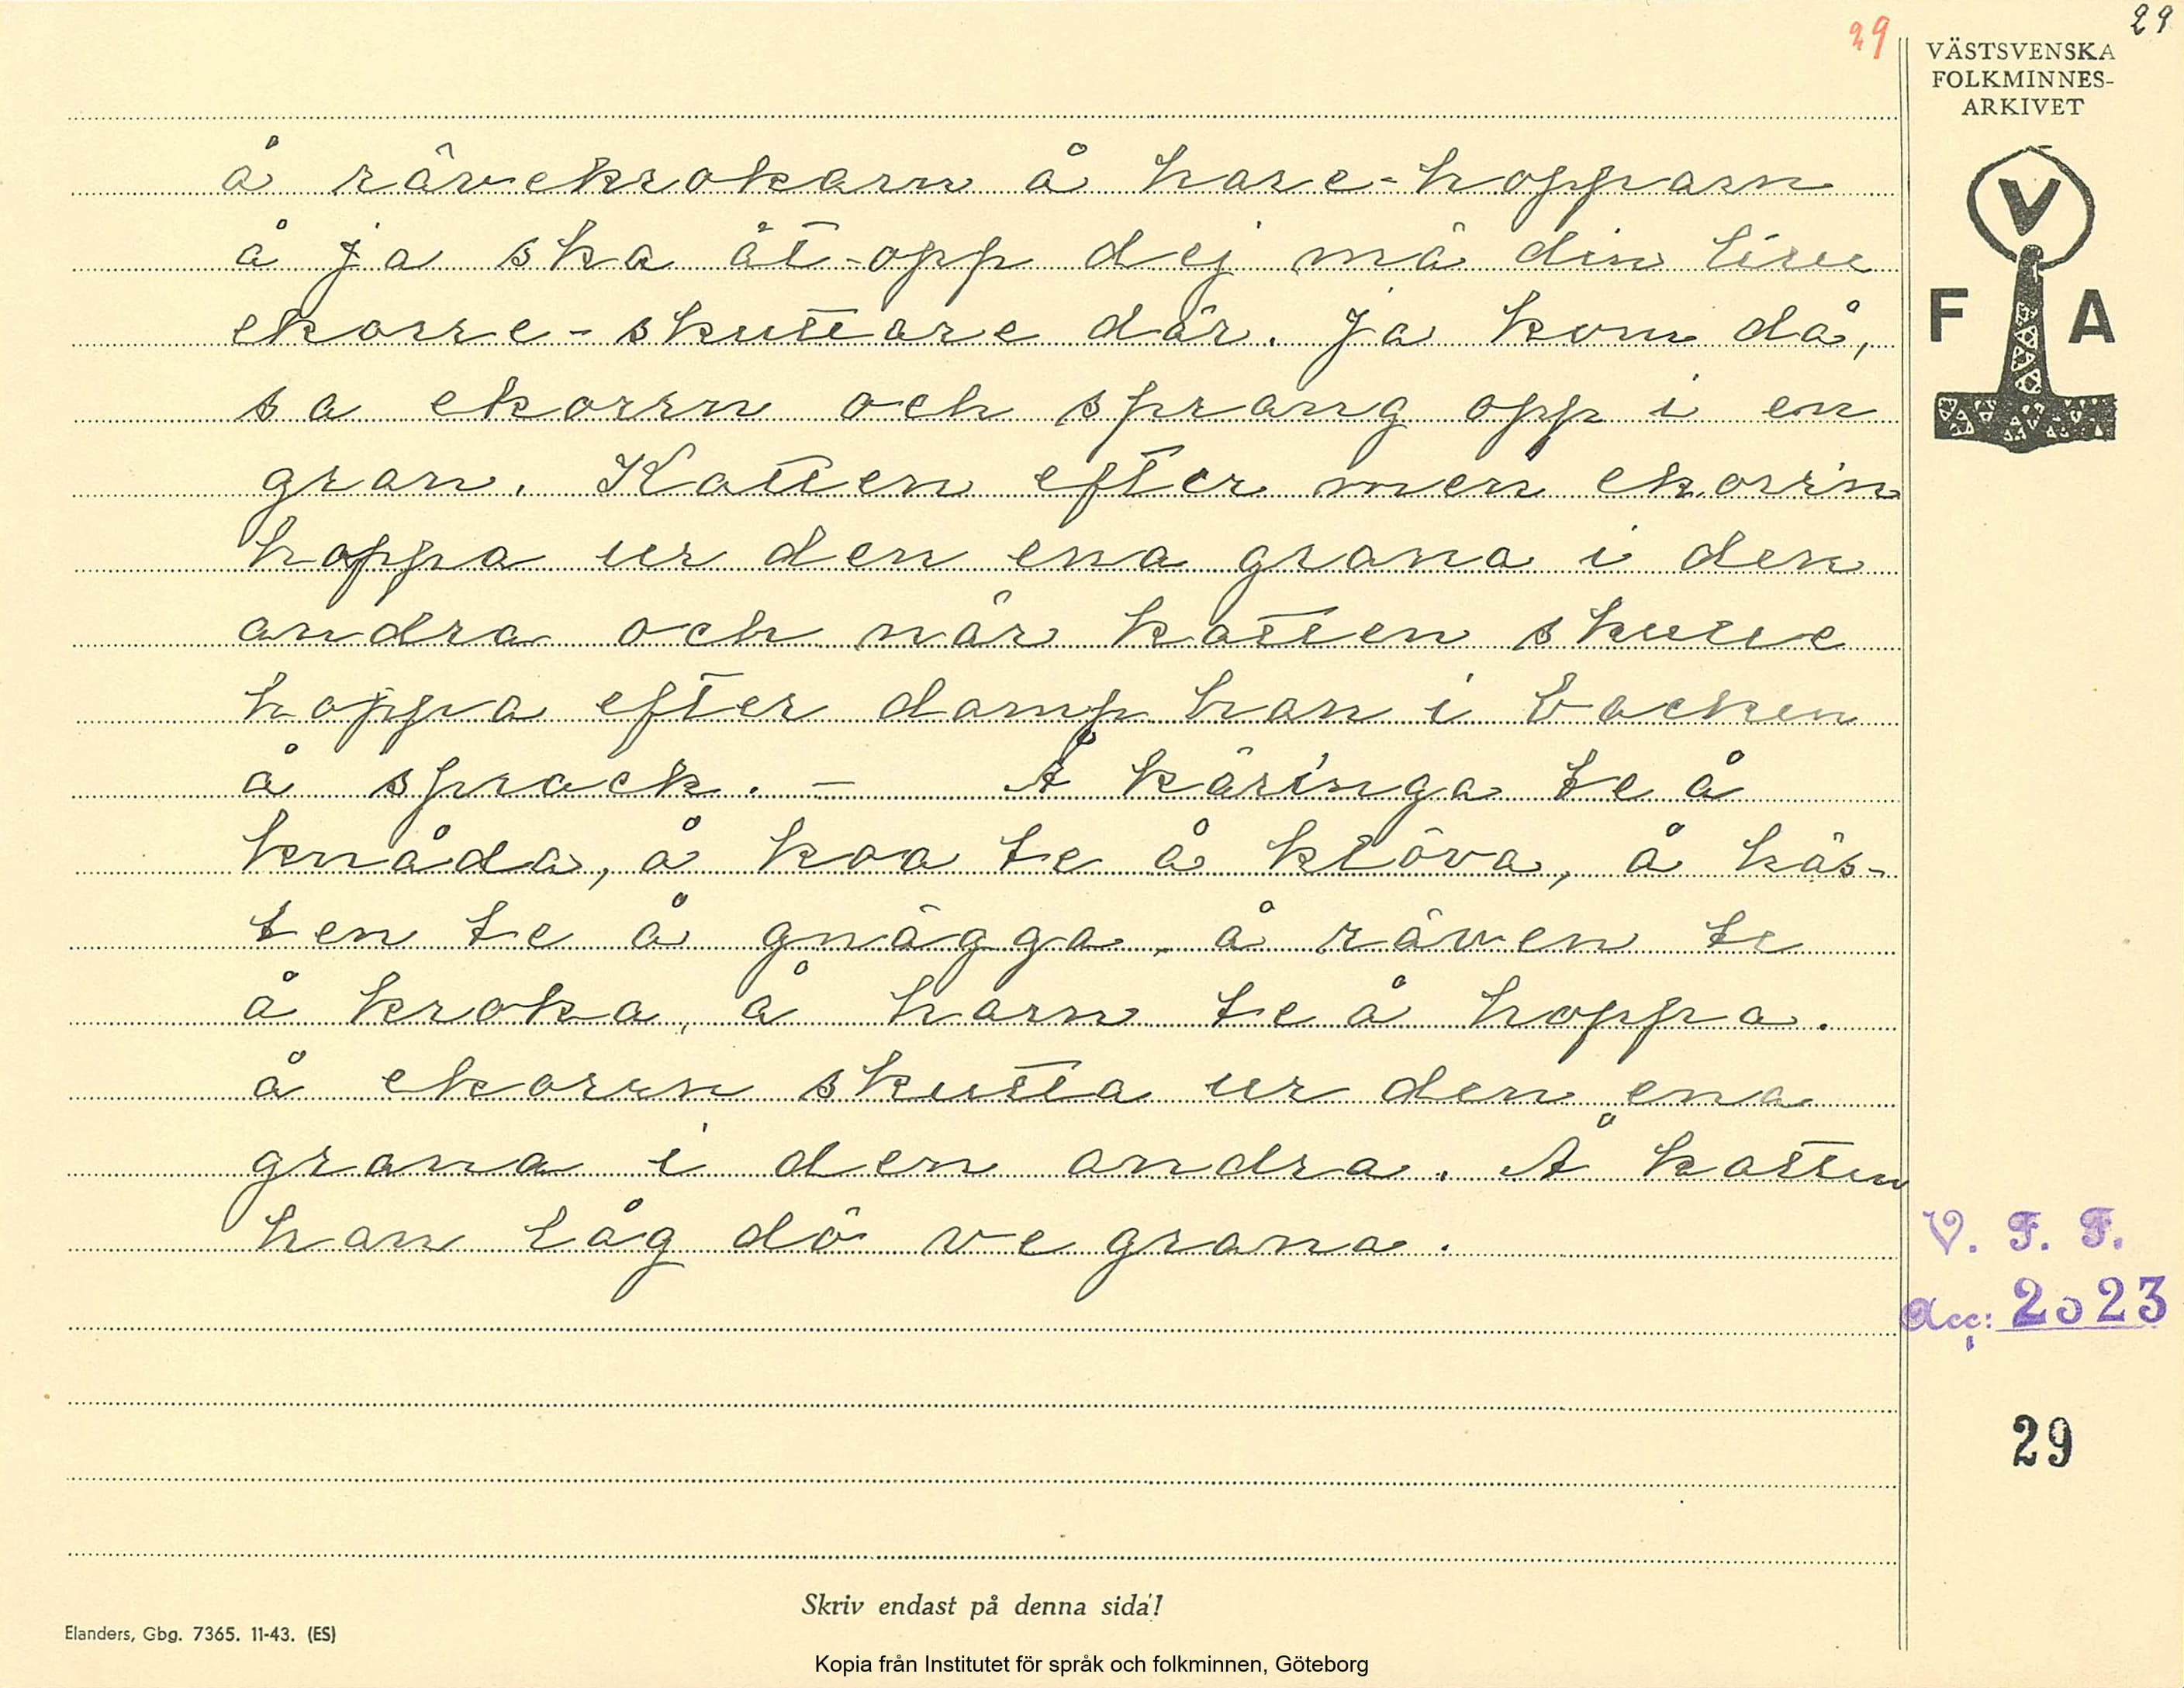 29
29
VÄSTSVENSKA
FOLKMINNES-
ARKIVET
V
F A
å rävekrokarn å hare-hopparn
å ja ska ät-opp dej må din lille
ekorre-skuttare där. Ja kom då,
sa ekorrn och sprang opp i en
gran. Katten efter men ekorrn
hoppa ur den ena grana i den
andra och när katten skulle
hoppa efter damp han i backen
å sprack. — Å käringa te å
knåda, å koa te å klöva, å häs-
ten te å gnägga, å räven te
å kroka, å harn te å hoppa.
å ekorrn skutta ur den ena
grana i den andra. Å katten
han låg dö ve grana.
V. F. F.
Acc: 2023
29
Skriv endast på denna sida!
Elanders, Gbg. 7365. 11-43. (ES)
Kopia från Institutet för språk och folkminnen, Göteborg